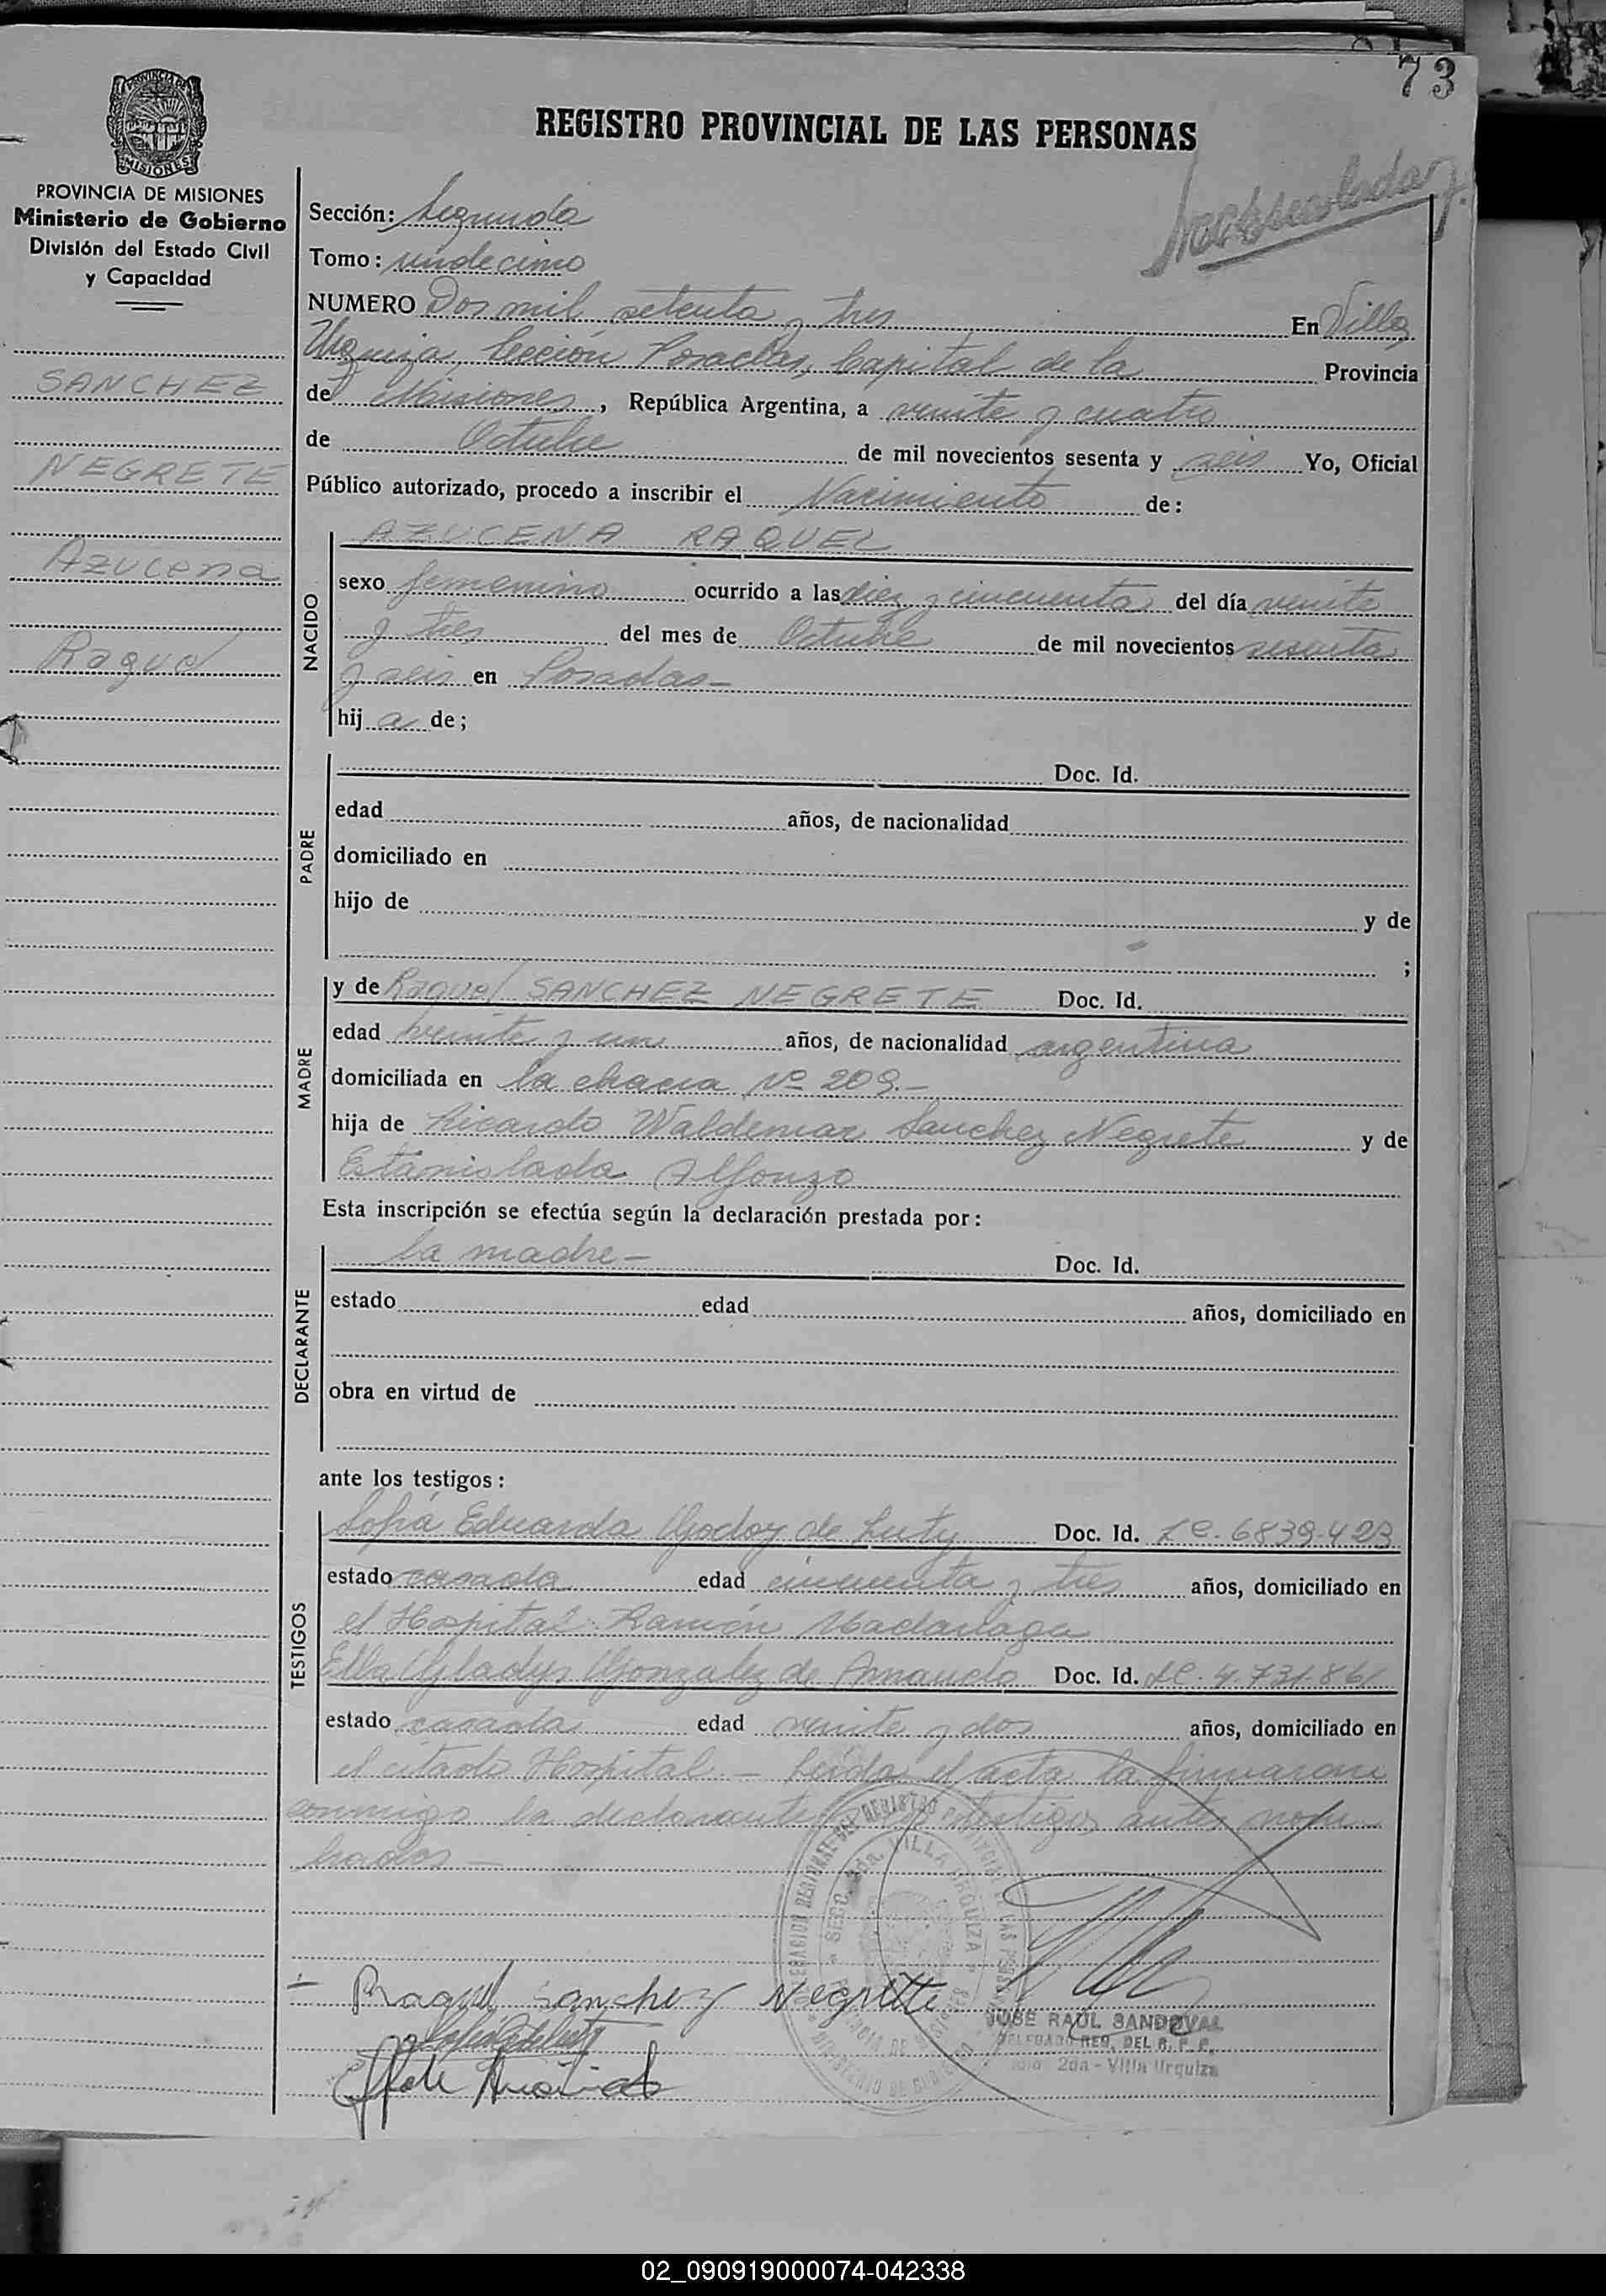 73
PROVINCIA DE
MISIONES
REGISTRO PROVINCIAL DE LAS PERSONAS
PROVINCIA DE MISIONES
Ministerio de Gobierno
División del Estado Civil
y Capacidad
SANCHEZ
NEGRETE
Azucena
Raquel
Sección: Segunda
Tomo: undecimo
NUMERO Dos mil setenta y tres En Villa
Urquiza, Sección Posadas, Capital de la Provincia
de Misiones, República Argentina, a veinte y cuatro
de Octubre de mil novecientos sesenta y seis Yo, Oficial
Público autorizado, procedo a inscribir el Nacimiento de:
NACIDO
AZUCENA RAQUEL
sexo femenino ocurrido a las diez y cincuenta del día veinte
y tres del mes de Octubre de mil novecientos sesenta
y seis en Posadas-
hija de;
PADRE
Doc. Id.
edad años, de nacionalidad
domiciliado en
hijo de y de
;
MADRE
y de Raquel SANCHEZ NEGRETE Doc. Id.
edad veinte y un años, de nacionalidad argentina
domiciliada en la chacra Nº 209.-
hija de Ricardo Waldemar Sanchez Negrete y de
Estanislada Alfonzo
Esta inscripción se efectúa según la declaración prestada por:
DECLARANTE
la madre- Doc. Id.
estado edad años, domiciliado en
obra en virtud de
ante los testigos:
TESTIGOS
Sofia Eduarda Godoy de Luty Doc. Id. LC. 6839.423
estado casada edad cincuenta y tres años, domiciliado en
el Hospital Ramón Madariaga
Elba Gladys Gonzalez de Doc. Id. LC. 4.731.861
estado casada edad veinte y dos años, domiciliado en
el citado Hospital - Leída el acta la firmaron
conmigo la declarante y los testigos antes nom
brados -
Raquel Sanchez Negrette
JOSE RAUL SANDOVAL
DELEGADO REG. DEL R. P. P.
2da - Villa Urquiza
02_090919000074-042338